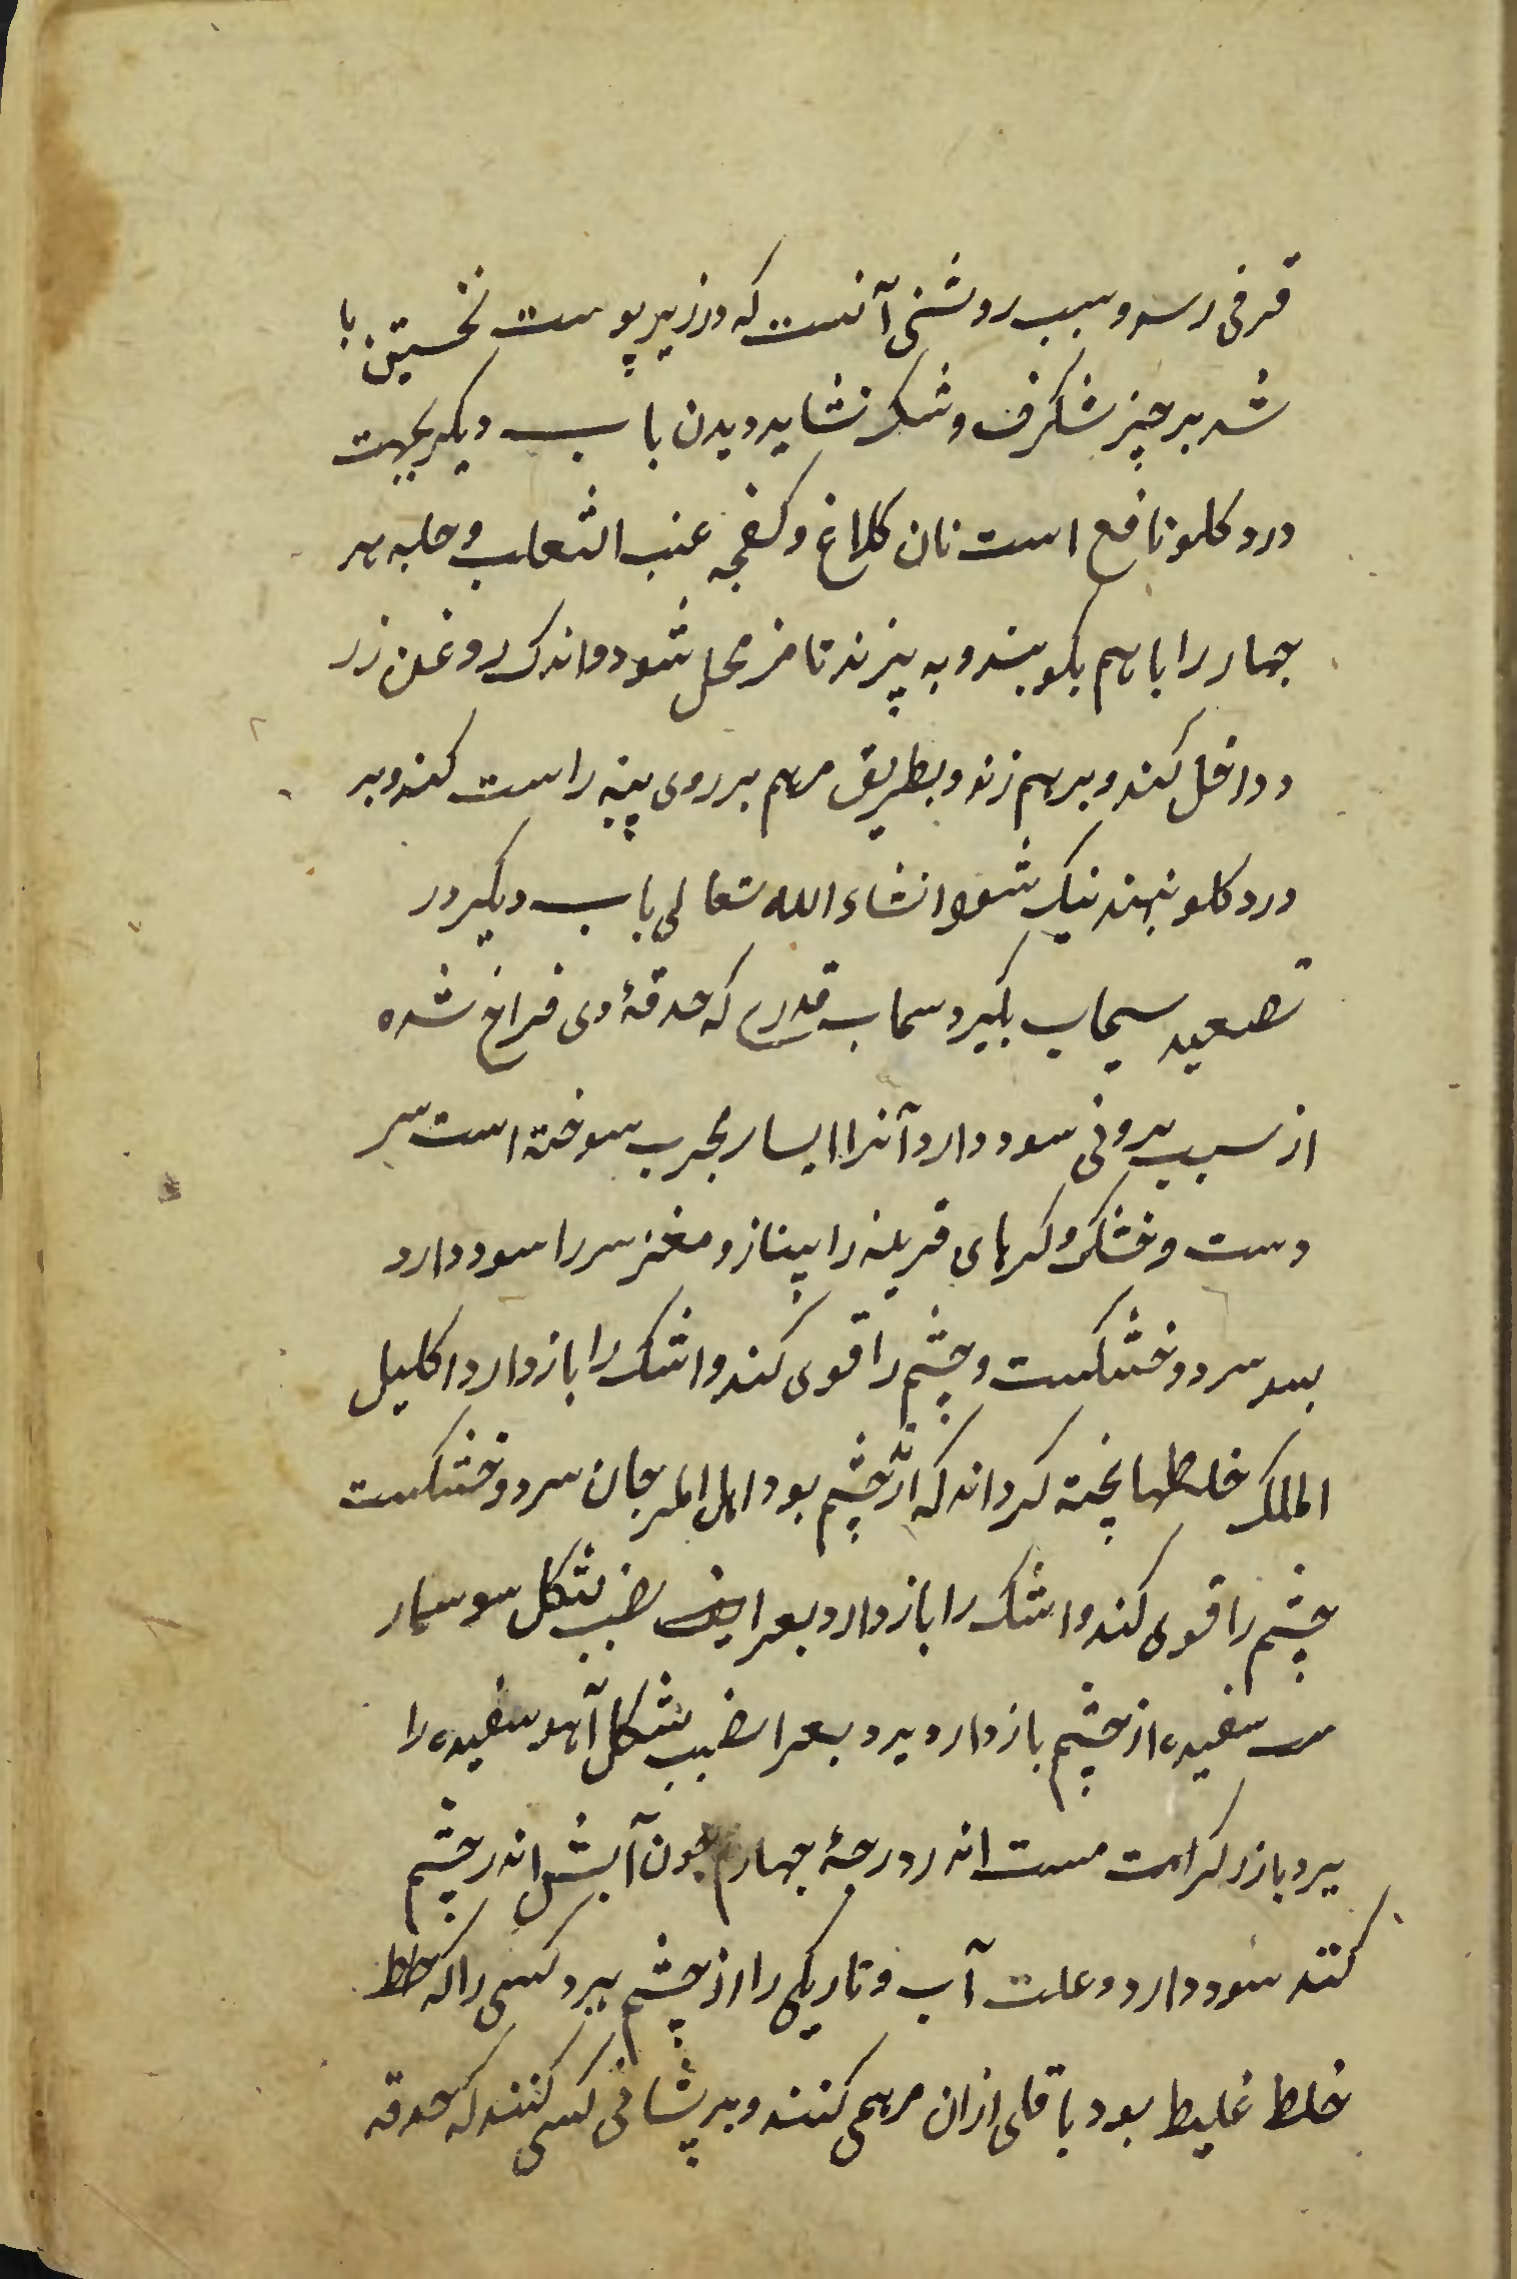 قرفی رسد و سبب روشنی آنست که در زیر پوست نخستین با
شد بر چیز شکرف و شک نشاید دیدن باب دیگر بجهت
درد کلو نافع است نان کلاغ و کفچه عنب الثعلب و حلبه هر
چهار را باهم بکوبند و به پزند تا مزمحل شود و اندک روغن زر
د داخل کند و برهم زند و بطریق مرهم بر روی پنبه راست کند و بر
درد کلو نهند نیک شود انشاء الله تعالی باب دیگر در
تصعید سیماب بگیرد سماب قدری که حدقهٔ وی فراخ شده
از سبب بیرونی سود دارد آنرا ایسار مجرب سوخته است سر
دست و خشک و کرهای قرینه را پینازو مغز سر را سود دارد
بسد سرد و خشکست و چشم را قوی کند و اشک را باز دارد اکلیل
الملک خلطها پخته کرداند که از چشم بود المرجان سرد و خشکست
چشم را قوی کند و اشک را باز دارد بعر ضب بشکل سوسمار
سفیده از چشم باز دارد ببرد بعر الضب بشکل آهو سفیده را
ببرد باز مست اندر درجهٔ چهارم چون آبش اندر چشم
کنند سود دارد و علت آب و تاریکی را از چشم ببرد کسی را که خلط
خلط غلیط بود باقلی ازان مرهمی کنند و بر پشانی کسی کنند که حدقه